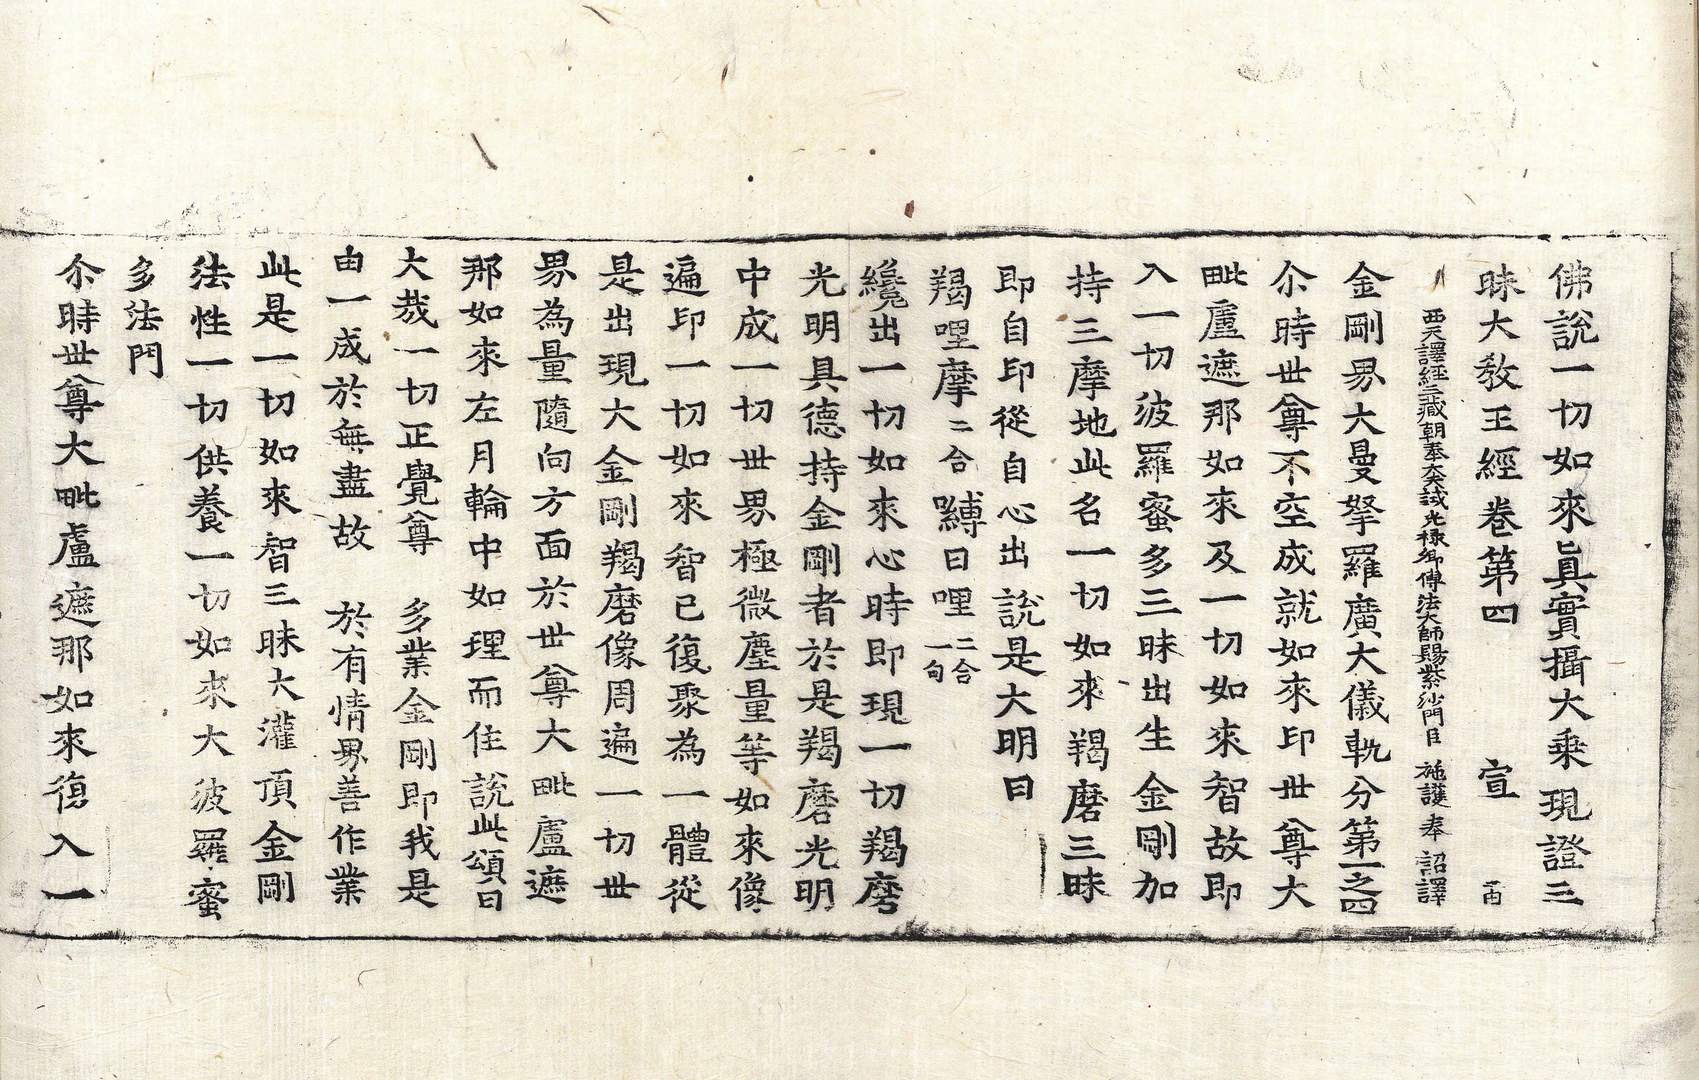 佛說一切如來眞實攝大乘現證三
昧大教王經卷第四 宣
西天譯經三藏朝奉大夫試光祿卿傳法大師賜紫沙門臣 施護 奉 詔譯
金剛界大曼拏羅廣大儀軌分第一之四
尒時世尊不空成就如來印世尊大
毗盧遮那如來及一切如來智故即
入一切波羅蜜多三昧出生金剛加
持三摩地此名一切如來羯磨三昧
即自印從自心出說是大明曰
羯哩摩二合嚩日哩二合一句
纔出一切如來心時即現一切羯磨
光明具德持金剛者於是羯磨光明
中成一切世界極微塵量等如來像
遍印一切如來智已復聚為一體從
是出現大金剛羯磨像周遍一切世
界為量隨向方面於世尊大毗盧遮
那如來左月輪中如理而住說此頌曰
大哉一切正覺尊 多業金剛即我是
由一成於無盡故 於有情界善作業
此是一切如來智三昧大灌頂金剛
法性一切供養一切如來大波羅蜜
多法門
尒時世尊大毗盧遮那如來復入一